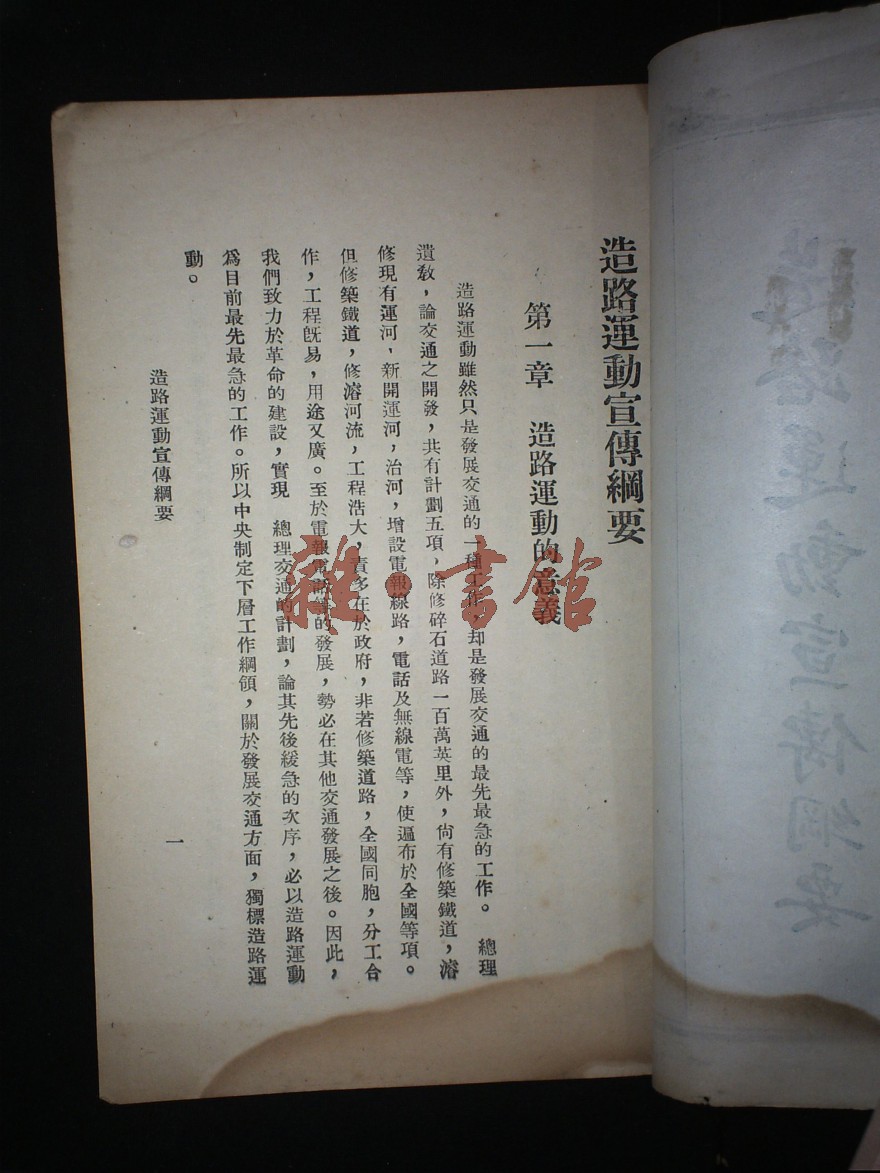 造路運動宣傳綱要
第一章　造路運動的意義
造路運動雖然只是發展交通的一種工作，却是發展交通的最先最急的工作。　總理
遺敎，論交通之開發，共有計劃五項，除修碎石道路一百萬英里外，尙有修築鐵道，濬
修現有運河，新開運河，治河，增設電報線路，電話及無線電等，使遍布於全國等項。
但修築鐵道，修濬河流，工程浩大，責多在於政府，非若修築道路，全國同胞，分工合
作，工程旣易，用途又廣。至於電報電話等的發展，勢必在其他交通發展之後。因此，
我們致力於革命的建設，實現　總理交通的計劃，論其先後緩急的次序，必以造路運動
爲目前最先最急的工作。所以中央制定下層工作綱領，關於發展交通方面，獨標造路運
動。
造路運動宣傳綱要
一
雜·書館